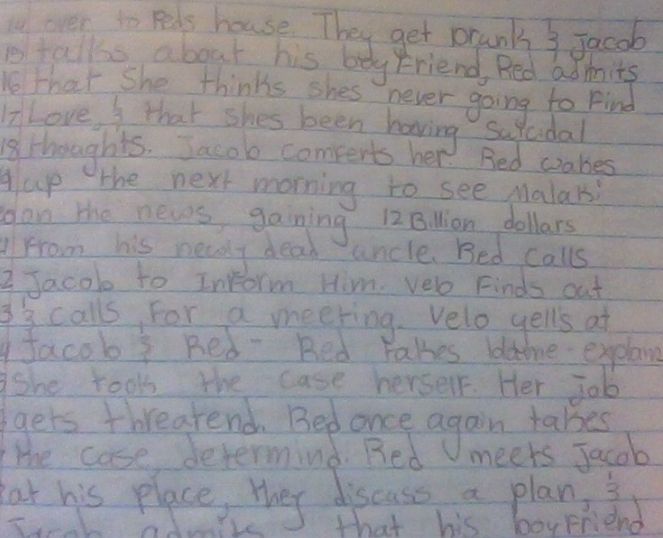 14 over to Reds house. They get Drunk & Jacob
15 talks about his boyfriend, Red admits
16 that She thinks shes never going to Find
17 Love, & that shes been having Suicidal
18 thoughts. Jacob comferts her. Red wakes
19 up the next morning to see Malaki
20 on the news, gaining 12 Billion dollars
21 From his newly dead uncle. Red calls
2 Jacob to Inform Him. Velo Finds out
3 & calls For a meeting. Velo yells at
4 Jacob & Red - Red takes blame - explains
5 She took the case herself. Her Job
gets threatend. Red once again takes
the case, determind. Red meets Jacob
at his place, they discuss a plan, &
Jacob admits that his boyfriend